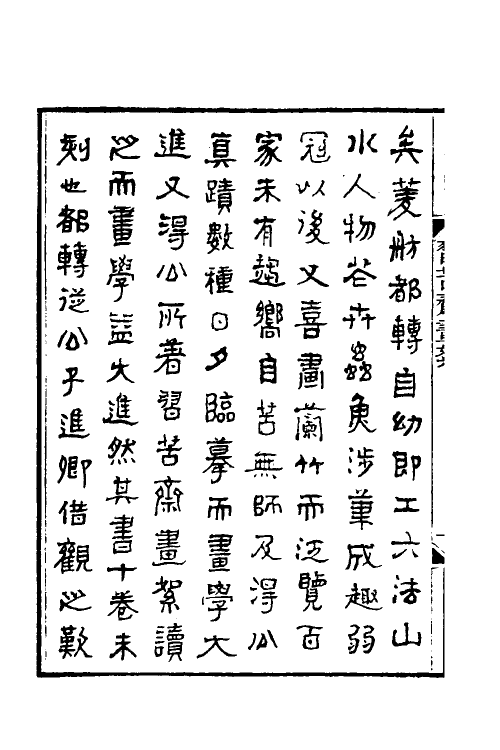 矣菱舫都轉自幼即工六法山
水人物花卉蟲魚涉筆成趣弱
冠以後又喜畫蘭竹而泛覽百
家未有趨嚮自苦無師及淂公
真蹟數種日夕臨摹而畫學大
進又淂公所著習苦齋畫絮讀
之而畫學益大進然其書十卷未
刻也都轉從公子進卿借觀之歎
習苦齋畫絮